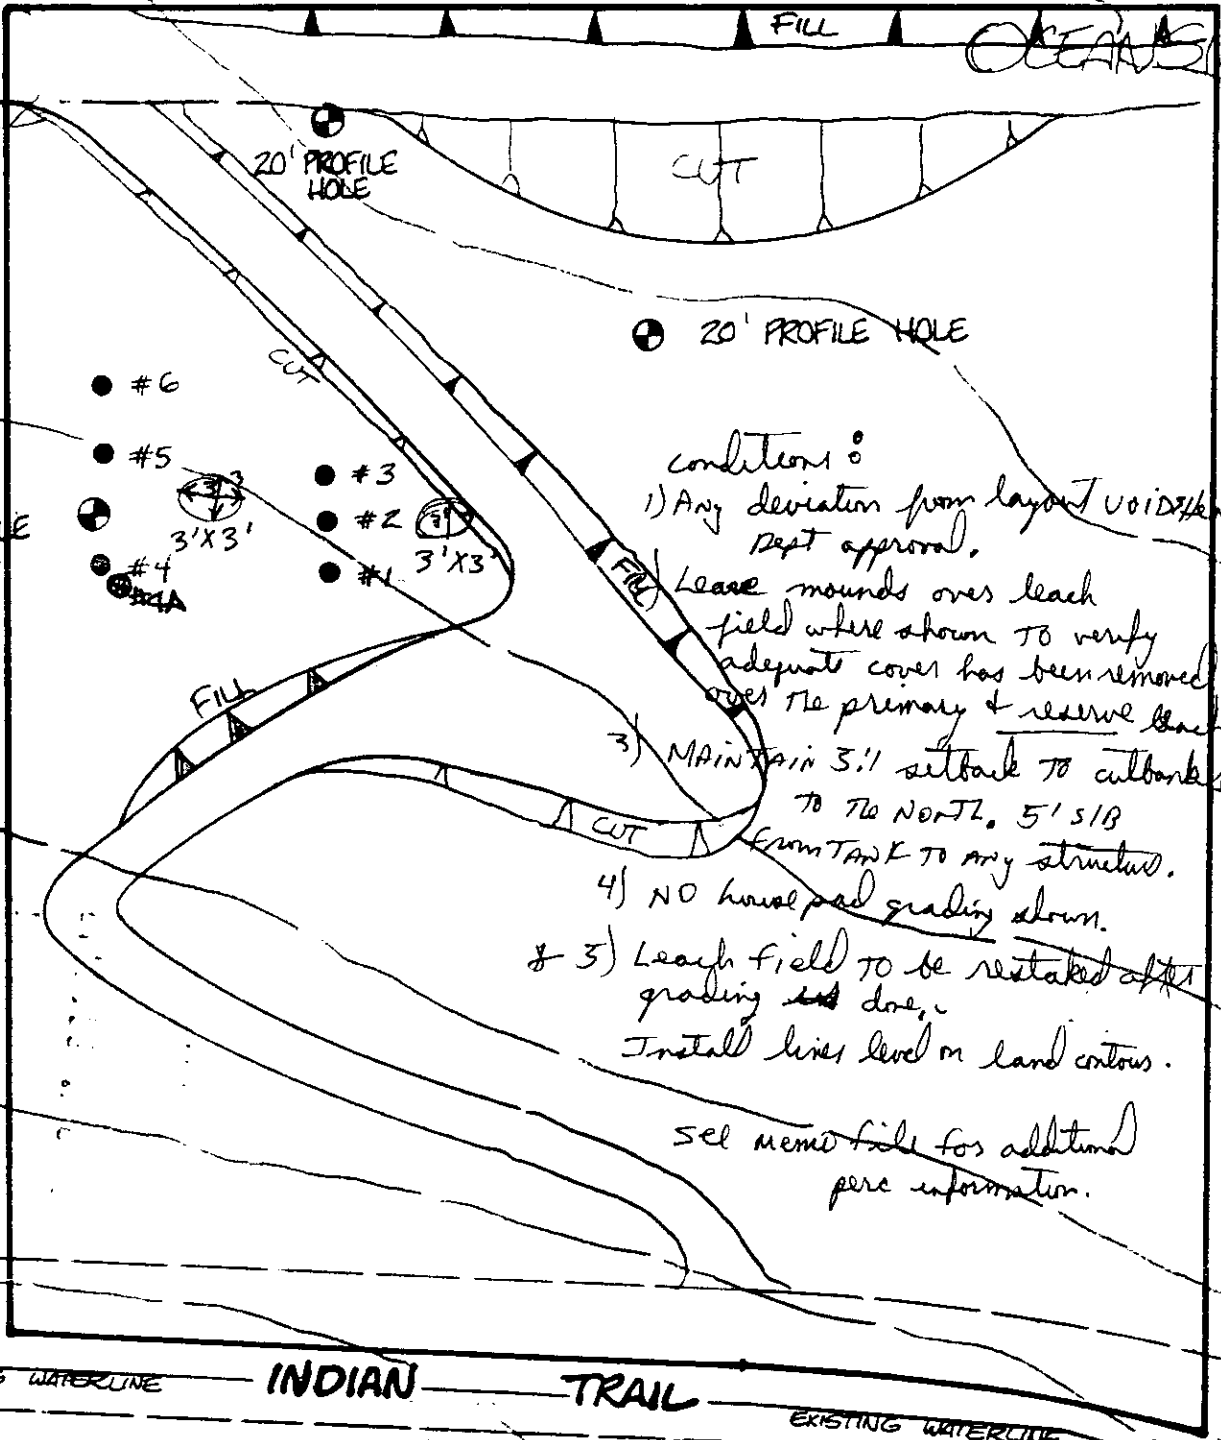 FILL
OCEANSI
20' PROFILE
HOLE
CUT
20' PROFILE HOLE
CUT
#6
#5
#3
#2
#1
3'X3'
3'X3'
#4
#4A
E
FILL
FILL
CUT
conditions:
1) Any deviation from layout VOIDS
Dept approval.
2) Leave mounds over leach
field where shown TO verify
adequate cover has been removed
over the primary & reserve
3) MAINTAIN 3:1 setback TO cutbanks
to the NORTH. 5' S/B
from TANK TO ANY structure.
4) NO house pad grading shown.
* 5) Leach field TO be restaked after
grading is done.
Install lines level on land contours.
see memo file for additional
perc information.
WATERLINE
INDIAN TRAIL
EXISTING WATERLINE